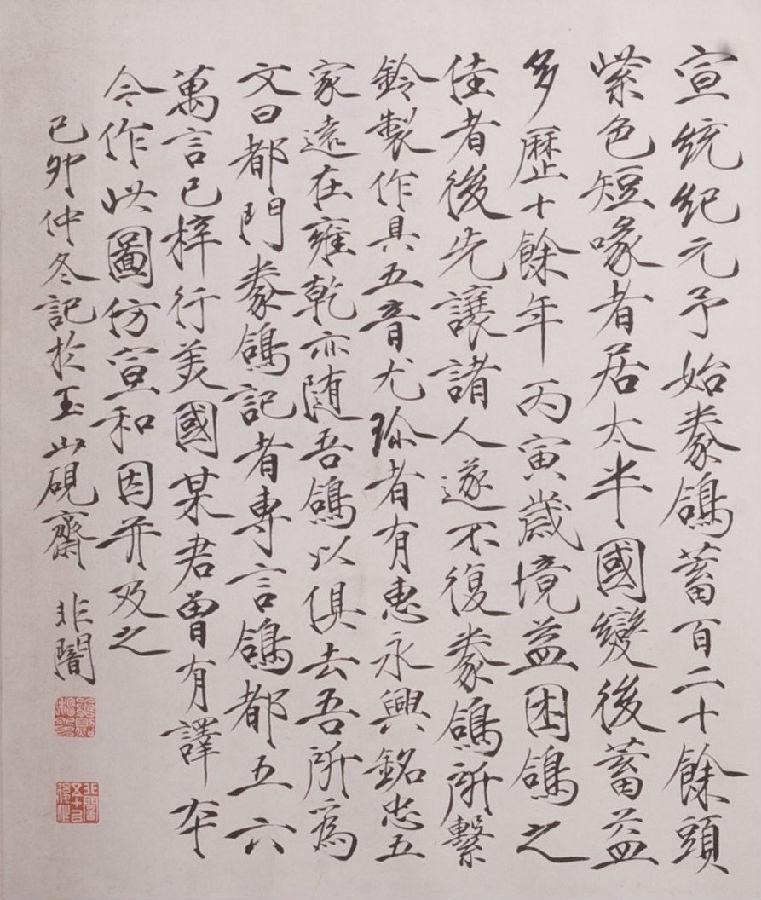 宣統紀元予始豢鴿蓄百二十餘頭
紫色短喙者居太半國變後蓄益
多歷十餘年丙寅歲境益困鴿之
佳者後先讓諸人遂不復豢鴿所繫
鈴製作具五音尤珍者有惠永興銘忠五
家遠在雍乾亦随吾鴿以俱去吾所為
文曰都門豢鴿記者專言鴿都五六
萬言已梓行美國某君曾有譯本
今作此圖仿宣和因并及之
己卯仲冬記於玉山硯齋 非闇